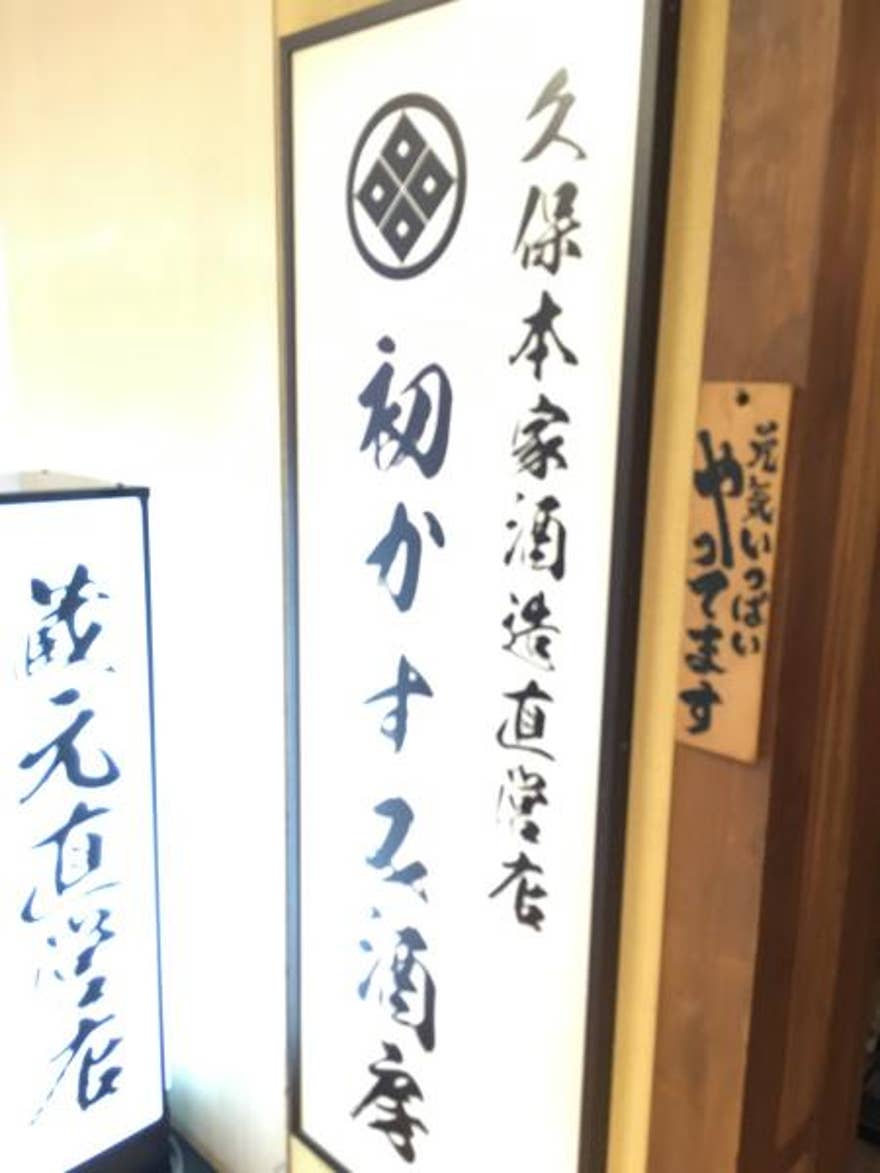 久保本家酒造直営店
初かすみ酒房
蔵元直営店
元気いっぱい
やってます